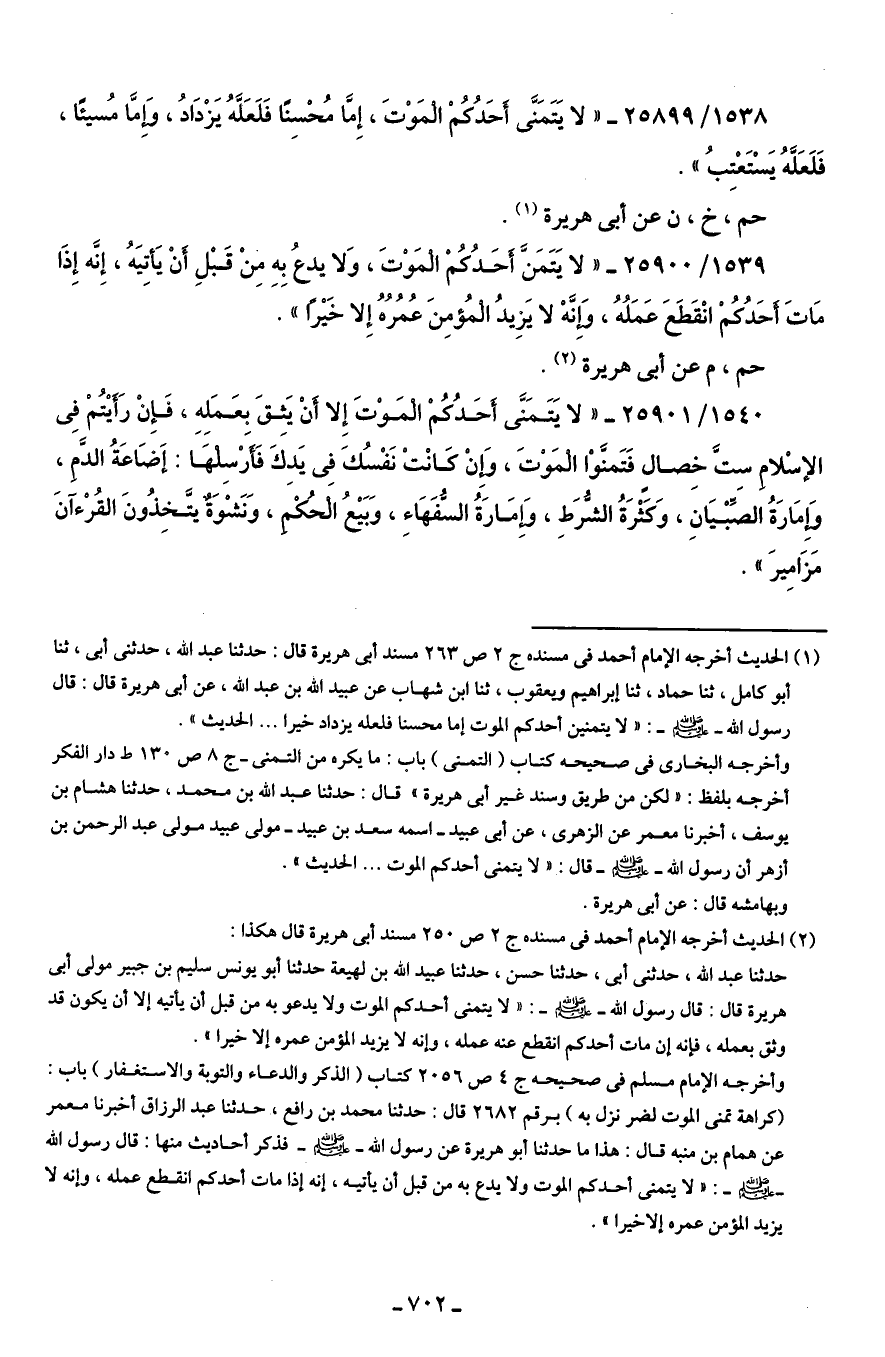 ٢٥٨٩٩/١٥٣٨ ـ « لا يَتَمَنَّى أَحَدُكُمْ الْمَوْتَ ، إِمَّا مُحْسِنًا فَلَعَلَّهُ يَزْدَادُ ، وَإِمَّا مُسِيئًا ،
فَلَعَلَّهُ يَسْتَعْتِبُ » .
حم ، خ ، ن عن أبى هريرة (١) .
٢٥٩٠٠/١٥٣٩ ـ « لا يَتَمَنَّ أَحَدُكُمْ الْمَوْتَ ، وَلا يدعُ بِهِ مِنْ قَبْلِ أَنْ يَأتِيَهُ ، إِنَّه إِذَا
مَاتَ أَحَدُكُمْ انْقَطَعَ عَمَلُهُ ، وَإِنَّهُ لا يَزِيدُ الْمُؤمِنَ عُمُرُهُ إِلا خَيْرًا » .
حم ، م عن أبى هريرة (٢) .
٢٥٩٠١/١٥٤٠ ـ « لا يَتَمَنَّى أَحَدُكُمْ الْمَوْتَ إِلا أَنْ يَثِقَ بِعَمَلِهِ ، فَإِنْ رَأَيْتُمْ فِى
الإِسْلامِ سِتَّ خِصَالٍ فَتَمنَّوْا الْمَوْتَ ، وَإِنْ كَانَتْ نَفْسُكَ فِى يَدِكَ فَأَرْسِلْهَا : إضَاعَةُ الدَّمِ ،
وَإِمَارَةُ الصِّبْيَانِ ، وَكَثْرَةُ الشُّرَطِ ، وَإِمَارَةُ السُّفَهَاءِ ، وَبَيْعُ الْحُكْمِ ، وَنَشْوَةٌ يتَّخِذُونَ القُرْءَآنَ
مَزَامِيرَ » .
(١) الحديث أخرجه الإمام أحمد فى مسنده ج ٢ ص ٢٦٣ مسند أبى هريرة قال : حدثنا عبد الله ، حدثنى أبى ، ثنا
أبو كامل ، ثنا حماد ، ثنا إبراهيم ويعقوب ، ثنا ابن شهاب عن عبيد الله بن عبد الله ، عن أبى هريرة قال : قال
رسول الله ـ ﷺ ـ : « لا يتمنين أحدكم الموت إما محسنا فلعله يزداد خيرا ... الحديث » .
وأخرجه البخارى فى صحيحه كتاب ( التمنى ) باب : ما يكره من التمنى ـ ج ٨ ص ١٣٠ ط دار الفكر
أخرجه بلفظ : « لكن من طريق وسند غير أبى هريرة » قال : حدثنا عبد الله بن محمد ، حدثنا هشام بن
يوسف ، أخبرنا معمر عن الزهرى ، عن أبى عبيد ـ اسمه سعد بن عبيد ـ مولى عبيد مولى عبد الرحمن بن
أزهر أن رسول الله ـ ﷺ ـ قال : « لا يتمنى أحدكم الموت ... الحديث » .
وبهامشه قال : عن أبى هريرة .
(٢) الحديث أخرجه الإمام أحمد فى مسنده ج ٢ ص ٢٥٠ مسند أبى هريرة قال هكذا :
حدثنا عبد الله ، حدثنى أبى ، حدثنا حسن ، حدثنا عبيد الله بن لهيعة حدثنا أبو يونس سليم بن جبير مولى أبى
هريرة قال : قال رسول الله ـ ﷺ ـ : « لا يتمنى أحدكم الموت ولا يدعو به من قبل أن يأتيه إلا أن يكون قد
وثق بعمله ، فإنه إن مات أحدكم انقطع عنه عمله ، وإنه لا يزيد المؤمن عمره إلا خيرا » .
وأخرجه الإمام مسلم فى صحيحه ج ٤ ص ٢٠٥٦ كتاب ( الذكر والدعاء والتوبة والاستغفار ) باب :
(كراهة تمنى الموت لضر نزل به ) برقم ٢٦٨٢ قال : حدثنا محمد بن رافع ، حدثنا عبد الرزاق أخبرنا معمر
عن همام بن منبه قال : هذا ما حدثنا أبو هريرة عن رسول الله ـ ﷺ ـ فذكر أحاديث منها : قال رسول الله
ـ ﷺ ـ : « لا يتمنى أحدكم الموت ولا يدع به من قبل أن يأتيه ، إنه إذا مات أحدكم انقطع عمله ، وإنه لا
يزيد المؤمن عمره إلاخيرا » .
ـ ٧٠٢ ـ